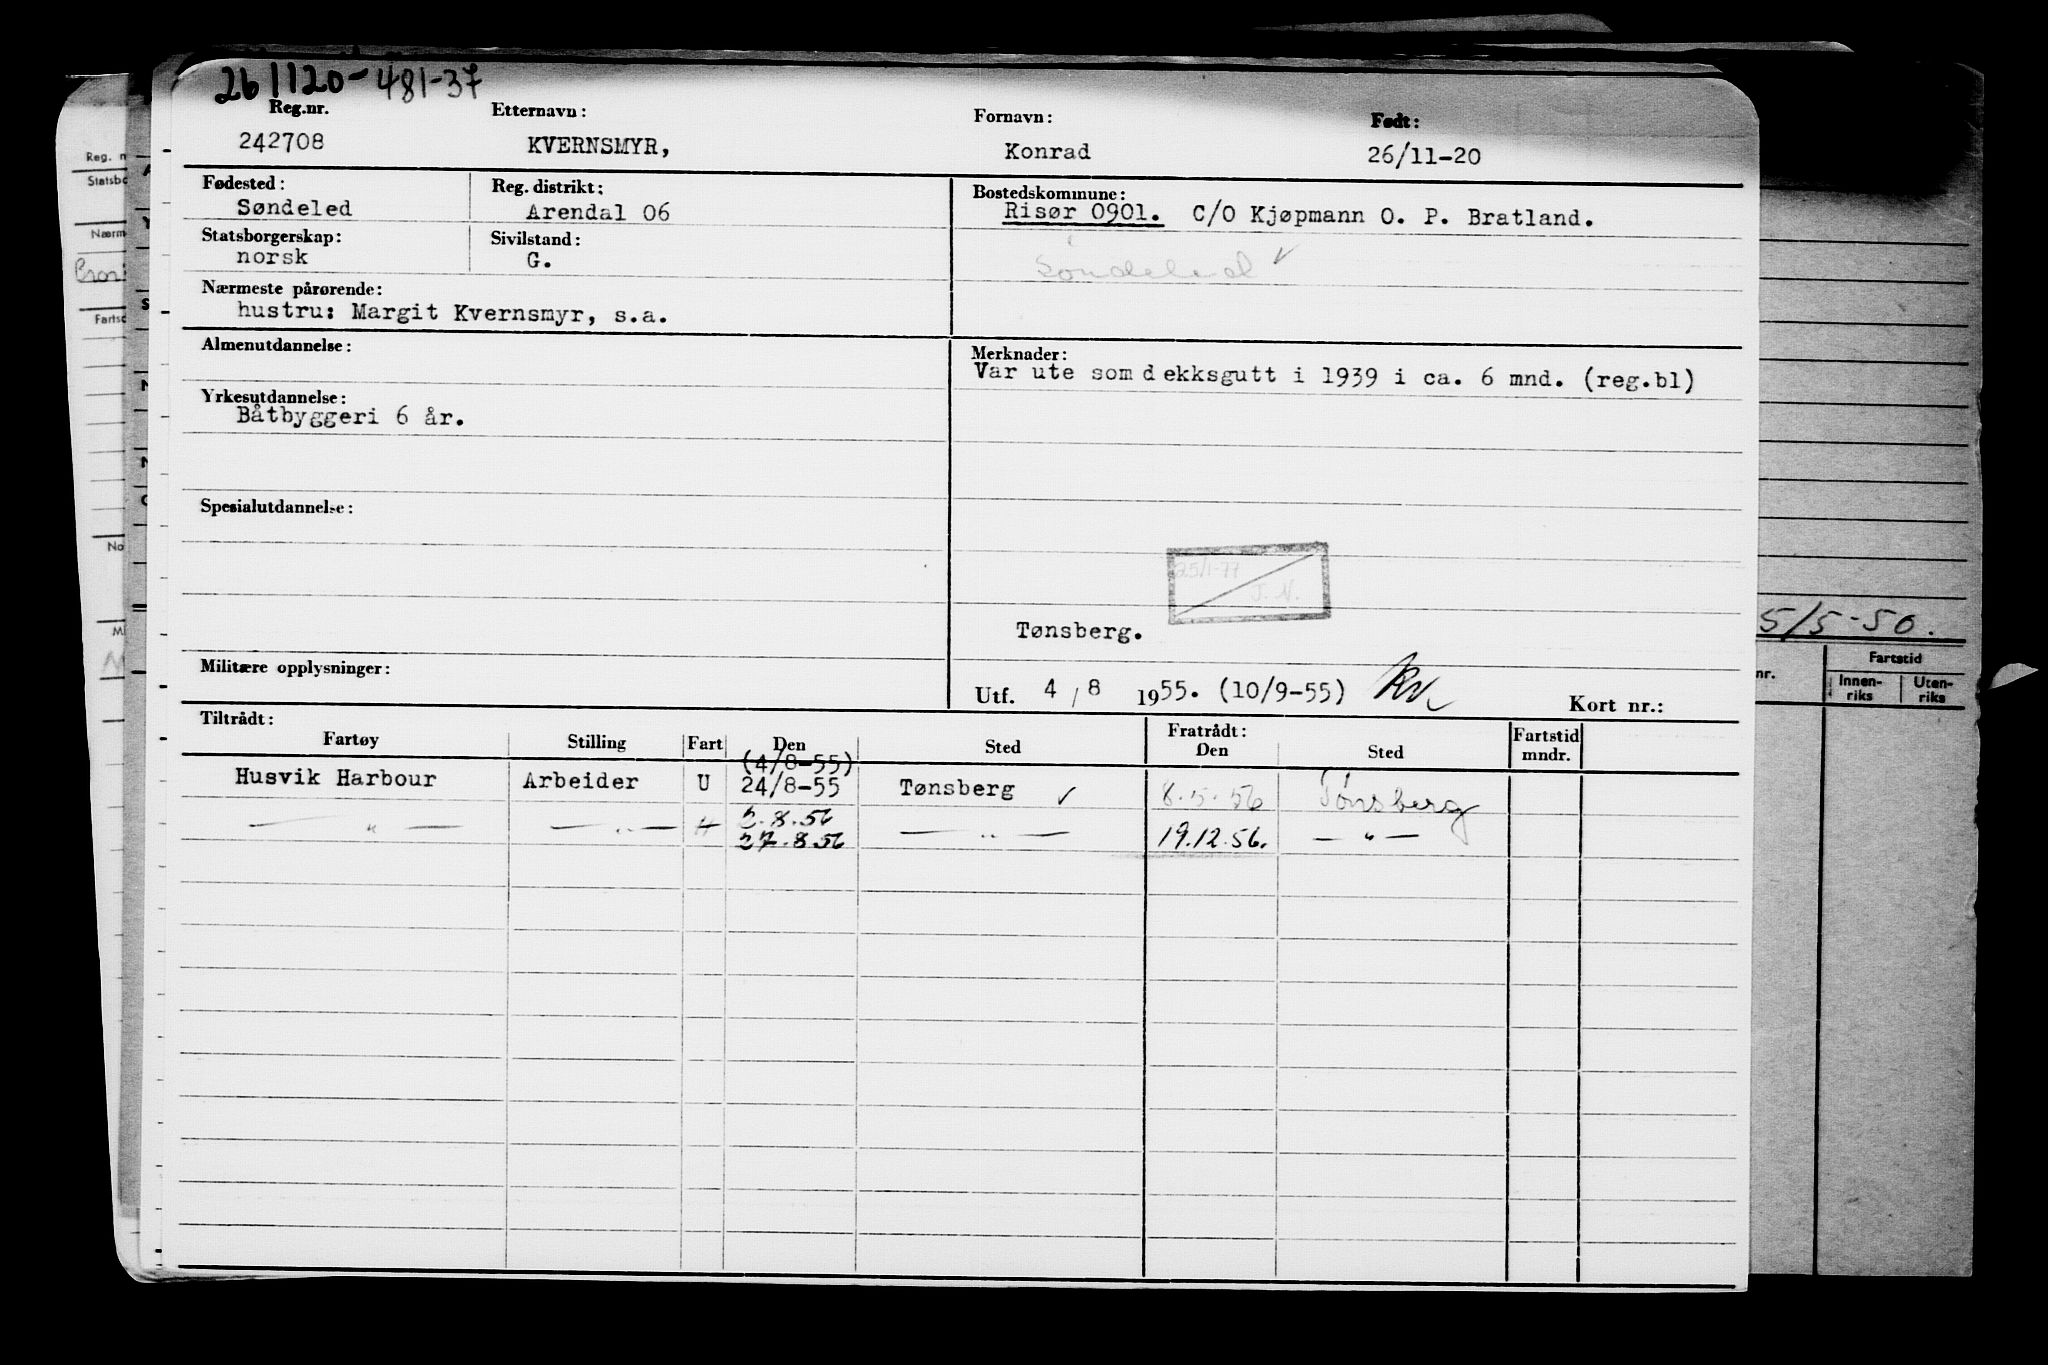 261120-481-37
Reg.nr. Etternavn: Fornavn: Født:
242708 KVERNSMYR, Konrad 26/11-20
Fødested: Reg. distrikt: Bostedskommune:
Søndeled Arendal 06 Risør 0901. C/O Kjøpmann O. P. Bratland.
Statsborgerskap: Sivilstand:
norsk G. Søndeled ✓
Nærmeste pårørende:
hustru: Margit Kvernsmyr, s.a.
Almenutdannelse: Merknader:
Var ute som dekksgutt i 1939 i ca. 6 mnd. (reg.bl)
Yrkesutdannelse:
Båtbyggeri 6 år.
Spesialutdannelse:
25/1-77
J. N.
Tønsberg.
Militære opplysninger:
Utf. 4 / 8 1955. (10/9-55) Kort nr.:
Tiltrådt: Fratrådt:
Fartøy Stilling Fart Den Sted Den Sted Fartstid mndr.
(4/8-55)
Husvik Harbour Arbeider U 24/8-55 Tønsberg ✓ 8.5.56 Tønsberg
2.8.56
— " — — " — 27.8.56 — " — 19.12.56. — " —
Reg. n
Statsbo
Nærm
Fartsc
No
M
5/5-50.
nr. Fartstid
Innen-riks Uten-riks